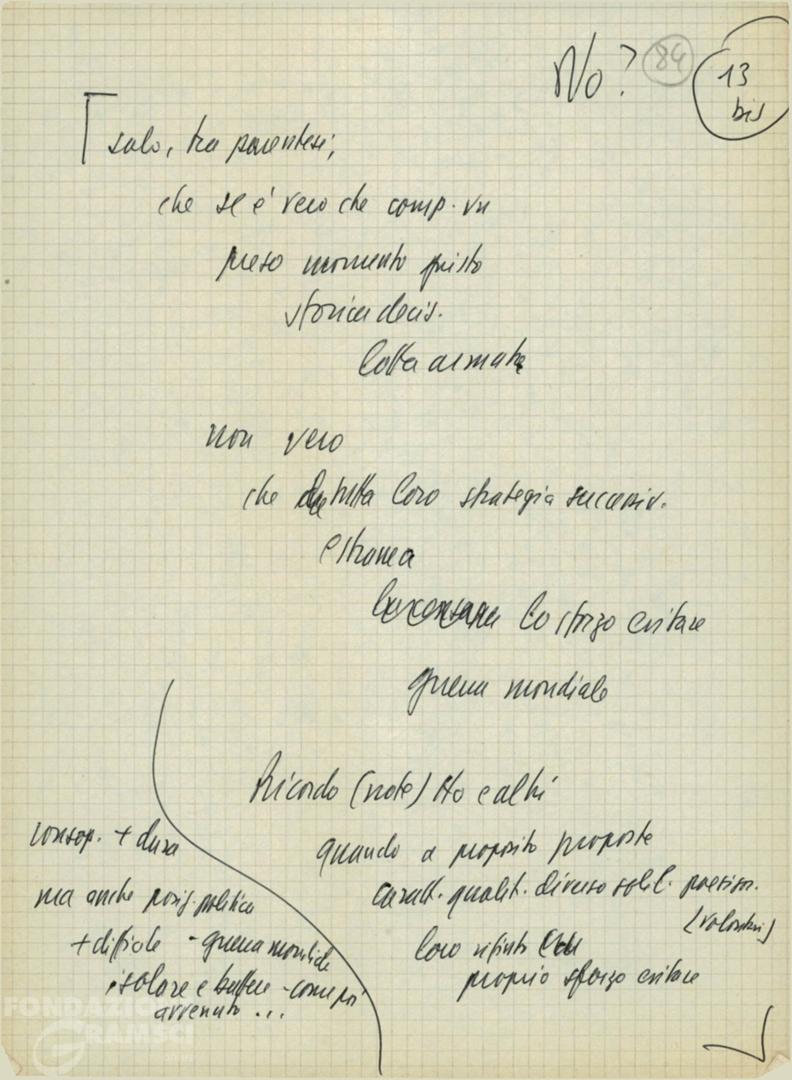 No? 84 13
bis
solo, tra parentesi,
che se è vero che comp. vn
preso momento giusto
storica decis.
lotta armata
non vero
che tutta loro strategia successiv.
estranea
lo sforzo evitare
guerra mondiale
Ricordo (note) Ho e altri
quando a proposito proposte
caratt. qualit. diverso solid.
(volontari)
loro rifiuto
proprio sforzo evitare
consap. + dura
ma anche posiz. politica
+ difficile - guerra mondiale
isolare e battere - come poi
avvenuto ...
FONDAZIONE
GRAMSCI